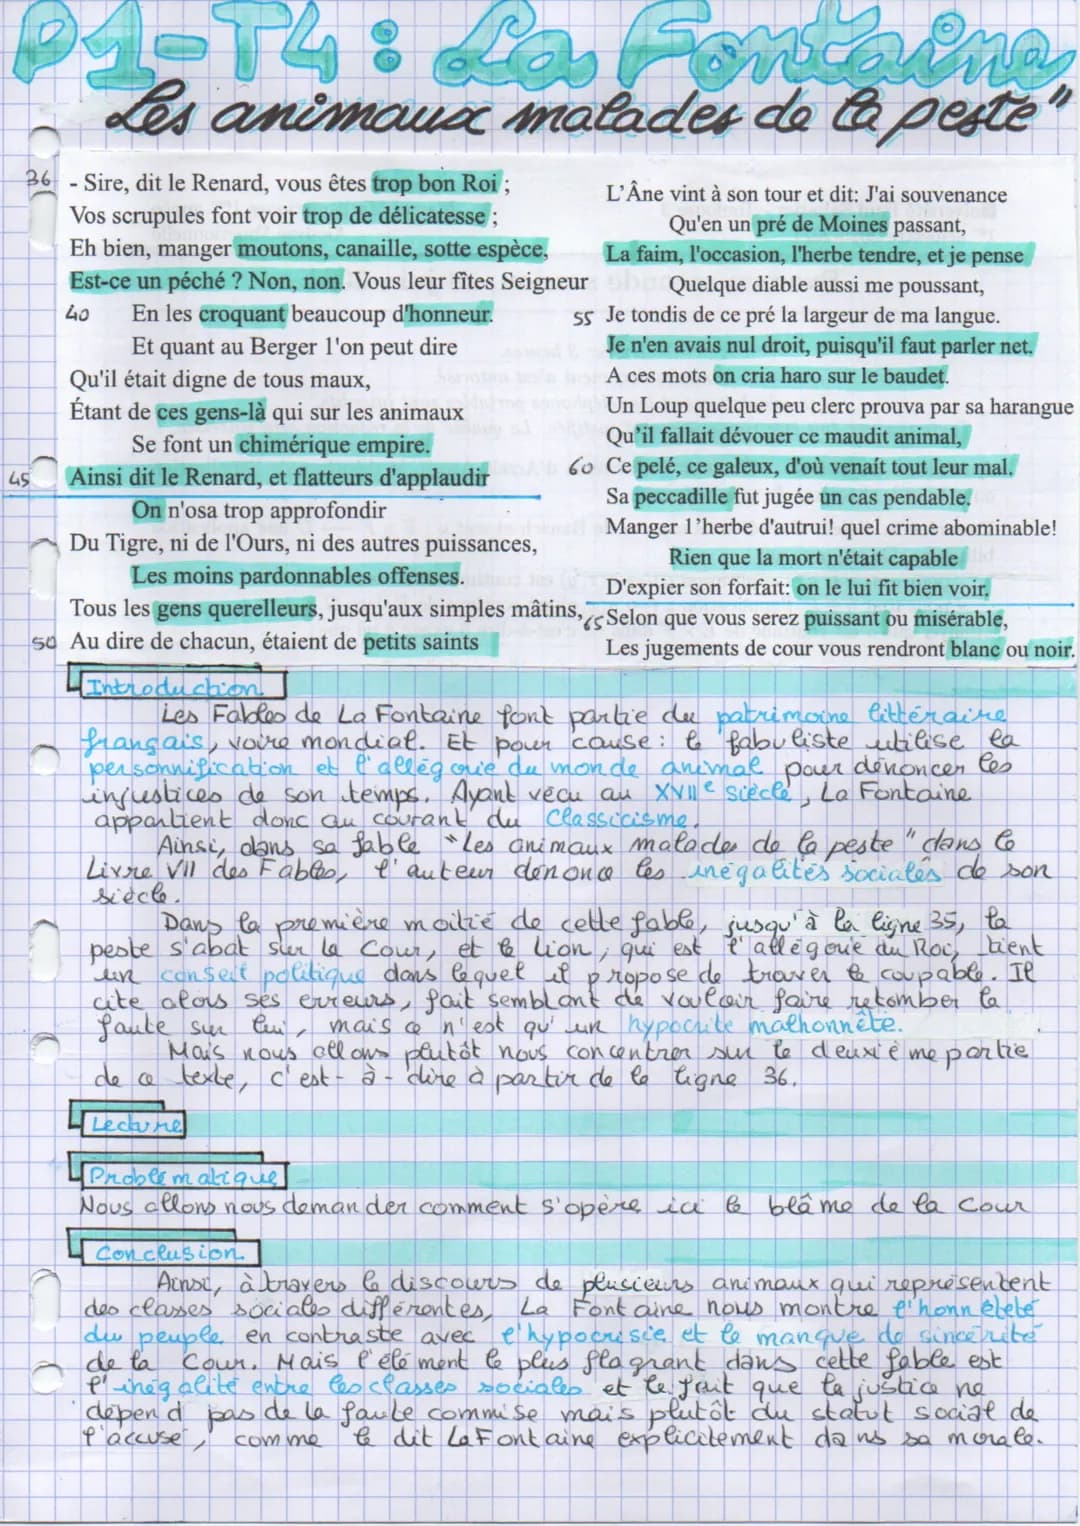 P1-T4 : La Fontaine
Les animaux malades de la peste"
36 - Sire, dit le Renard, vous êtes trop bon Roi ;
Vos scrupules font voir trop de délicatesse ;
Eh bien, manger moutons, canaille, sotte espèce,
Est-ce un péché ? Non, non. Vous leur fîtes Seigneur
40 En les croquant beaucoup d'honneur.
Et quant au Berger l'on peut dire
Qu'il était digne de tous maux,
Étant de ces gens-là qui sur les animaux
Se font un chimérique empire.
45 Ainsi dit le Renard, et flatteurs d'applaudir
On n'osa trop approfondir
Du Tigre, ni de l'Ours, ni des autres puissances,
Les moins pardonnables offenses.
Tous les gens querelleurs, jusqu'aux simples mâtins,
50 Au dire de chacun, étaient de petits saints
L'Âne vint à son tour et dit: J'ai souvenance
Qu'en un pré de Moines passant,
La faim, l'occasion, l'herbe tendre, et je pense
Quelque diable aussi me poussant,
55 Je tondis de ce pré la largeur de ma langue.
Je n'en avais nul droit, puisqu'il faut parler net.
A ces mots on cria haro sur le baudet.
Un Loup quelque peu clerc prouva par sa harangue
Qu'il fallait dévouer ce maudit animal,
60 Ce pelé, ce galeux, d'où venait tout leur mal.
Sa peccadille fut jugée un cas pendable.
Manger l'herbe d'autrui! quel crime abominable!
Rien que la mort n'était capable
D'expier son forfait: on le lui fit bien voir.
65 Selon que vous serez puissant ou misérable,
Les jugements de cour vous rendront blanc ou noir.
Introduction
Les Fables de La Fontaine font partie du patrimoine littéraire
français, voire mondial. Et pour cause : le fabuliste utilise la
personnification et l'allégorie du monde animal pour dénoncer les
injustices de son temps. Ayant vécu au XVIIe siècle, La Fontaine
appartient donc au courant du Classicisme.
Ainsi, dans sa fable "Les animaux malades de la peste" dans le
Livre VII des Fables, l'auteur dénonce les inégalités sociales de son
siècle.
Dans la première moitié de cette fable, jusqu'à la ligne 35, la
peste s'abat sur la Cour, et le lion, qui est l'allégorie du Roi, tient
un conseil politique dans lequel il propose de trouver le coupable. Il
cite alors ses erreurs, fait semblant de vouloir faire retomber la
faute sur lui, mais ce n'est qu'un hypocrite malhonnête.
Mais nous allons plutôt nous concentrer sur le deuxième partie
de ce texte, c'est-à-dire à partir de le ligne 36.
Lecture
Problématique
Nous allons nous demander comment s'opère ici le blâme de la Cour
Conclusion
Ainsi, à travers le discours de plusieurs animaux qui représentent
des classes sociales différentes, La Fontaine nous montre l'honnêteté
du peuple en contraste avec l'hypocrisie et le manque de sincérité
de la Cour. Mais l'élément le plus flagrant dans cette fable est
l'inégalité entre les classes sociales et le fait que la justice ne
dépend pas de la faute commise mais plutôt du statut social de
l'accusé, comme le dit La Fontaine explicitement dans sa morale.